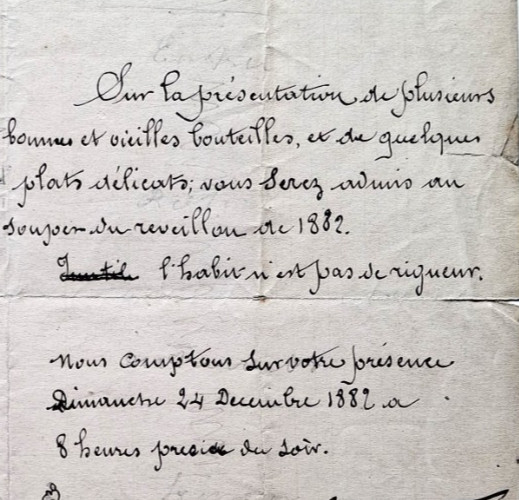 Sur la présentation de plusieurs
bonnes et vieilles bouteilles, et de quelques
plats délicats; vous serez admis au
souper du reveillon de 1882.
Inutile l'habit n'est pas de rigueur.
Nous comptons sur votre présence
Dimanche 24 Decembre 1882 a
8 heures précises du soir.